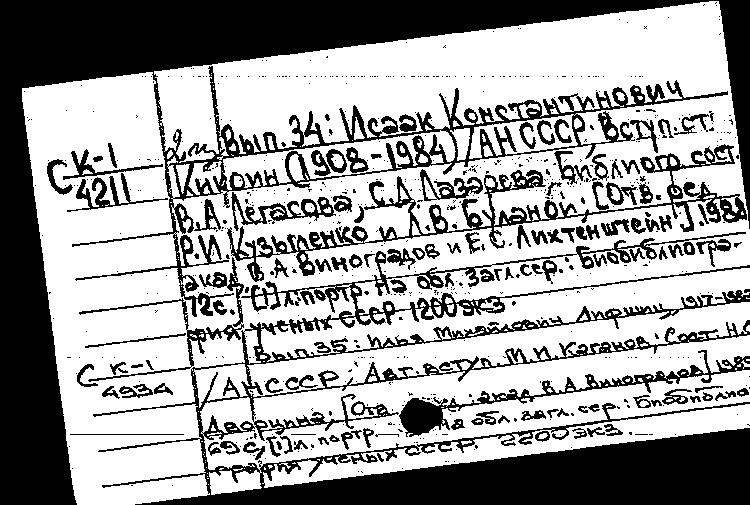 Вып. 34: Исаак Константинович
С К-1 2 Кикоин (1908-1984) / АН СССР. Вступ. ст.
4211 В. А. Легасова; С. Д. Лазарева. Библиогр. сост.
Р. И. Кузьменко и Л. В. Буланой; [Отв. ред.
акад. В. А. Виноградов и Е. С. Лихтенштейн]. 1988
72с. [1] л. портр. На обл. загл. сер.: Биобиблиогра-
фия ученых СССР. 1200 экз.
Вып. 35: Илья Михайлович Лифшиц, 1917-1982
С К-1 / АН СССР; Авт. вступ. М. И. Каганов; Сост. Н.
4934 Дворцина; [Отв. акад В. А Виноградов] 198
69 с, [1] л. портр. На обл. загл. сер.: Биобиблио
графия ученых СССР 2200 экз.